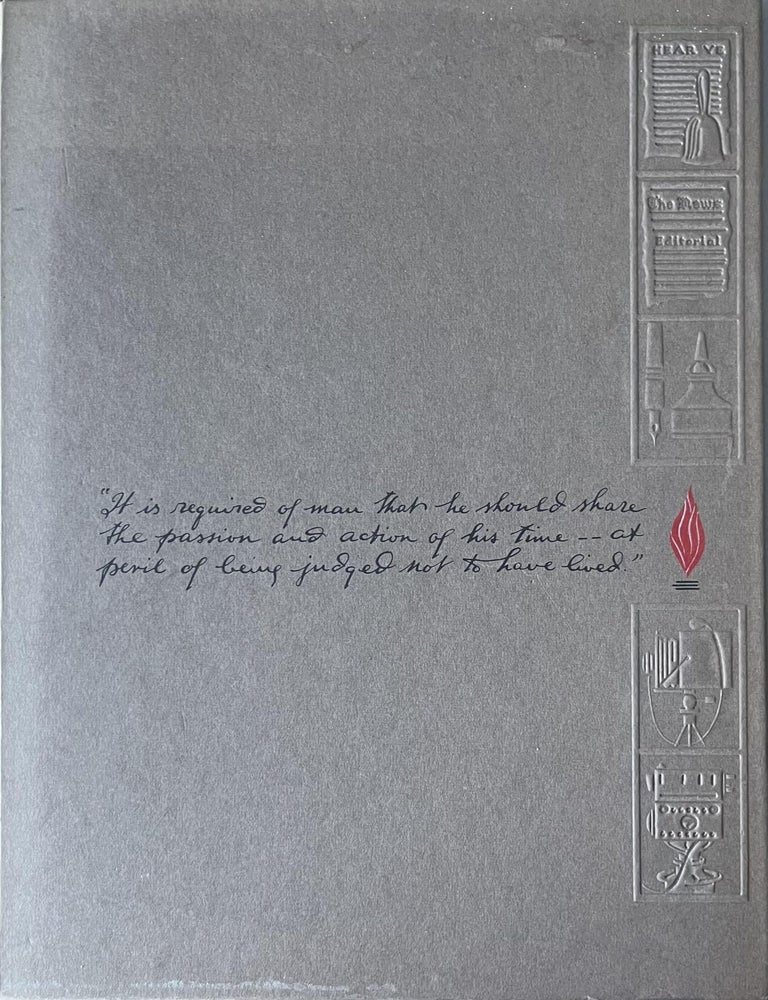 HEAR YE
The News
Editorial
"It is required of man that he should share
the passion and action of his time -- at
peril of being judged not to have lived."